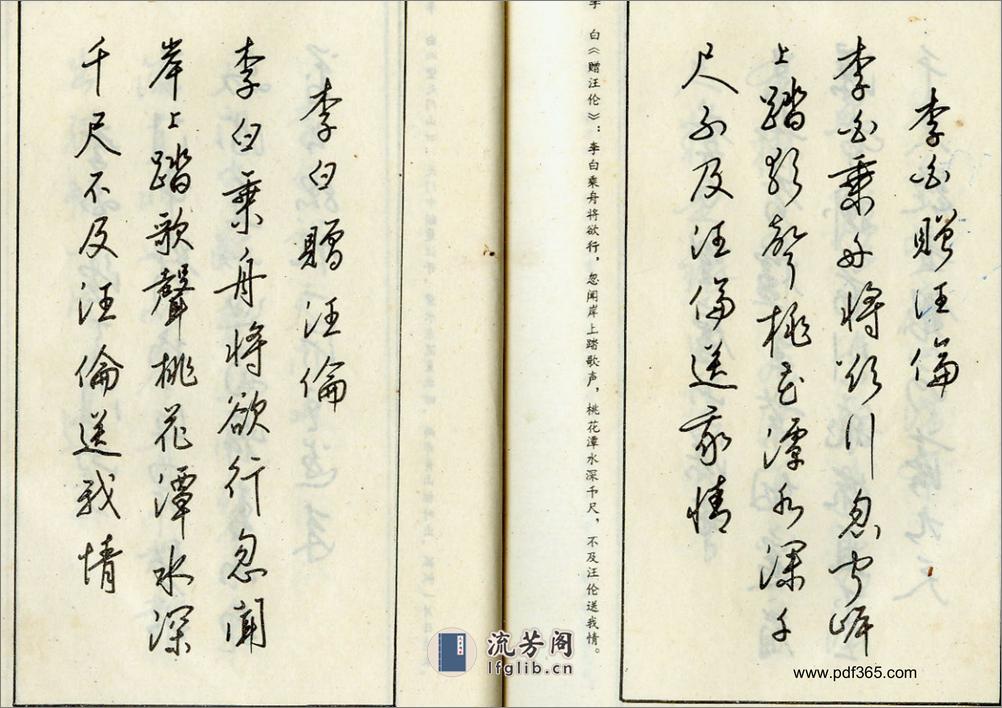 李白贈汪倫
李白乘舟將欲行忽聞岸
上踏歌聲桃花潭水深千
尺不及汪倫送我情
李 白《赠汪伦》：李白乘舟将欲行，忽闻岸上踏歌声，桃花潭水深千尺，不及汪伦送我情。
李白贈汪倫
李白乘舟將欲行忽聞
岸上踏歌聲桃花潭水深
千尺不及汪倫送我情
流芳阁
lfglib.cn
www.pdf365.com